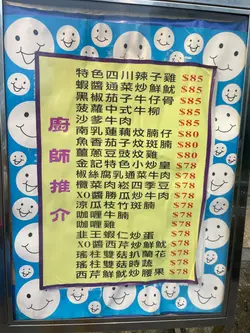 廚師推介
特色四川辣子雞 $85
蝦醬通菜炒鮮魷 $85
黑椒茄子牛仔骨 $85
菠蘿中式牛柳 $85
沙爹牛肉 $85
南乳蓮藕炆腩仔 $80
魚香茄子炆斑腩 $80
薑蔥豆豉炆雞 $80
金記特色小炒皇 $78
椒絲腐乳通菜牛肉 $78
欖菜肉崧四季豆 $78
XO醬勝瓜炒牛肉 $78
涼瓜炆竹斑腩 $78
咖喱牛腩 $78
咖喱雞 $78
韭王蝦仁炒蛋 $78
XO醬西芹炒鮮魷 $78
瑤柱雙菇扒蘭花 $78
瑤柱雙菇時蔬 $78
西芹鮮魷炒腰果 $78